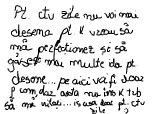 Pt. ctv zile nu voi mai
desena pt k vreau să
mă perfationez și să
găsesc mai multe da pt
desene... pe aici va fi doar
pcom, daz asta nu ins k tub
să mă uitați... is asa doar pt. ctv
zile